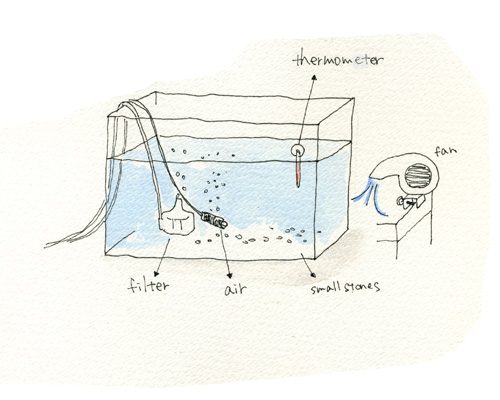 thermometer
fan
filter
air
small stones